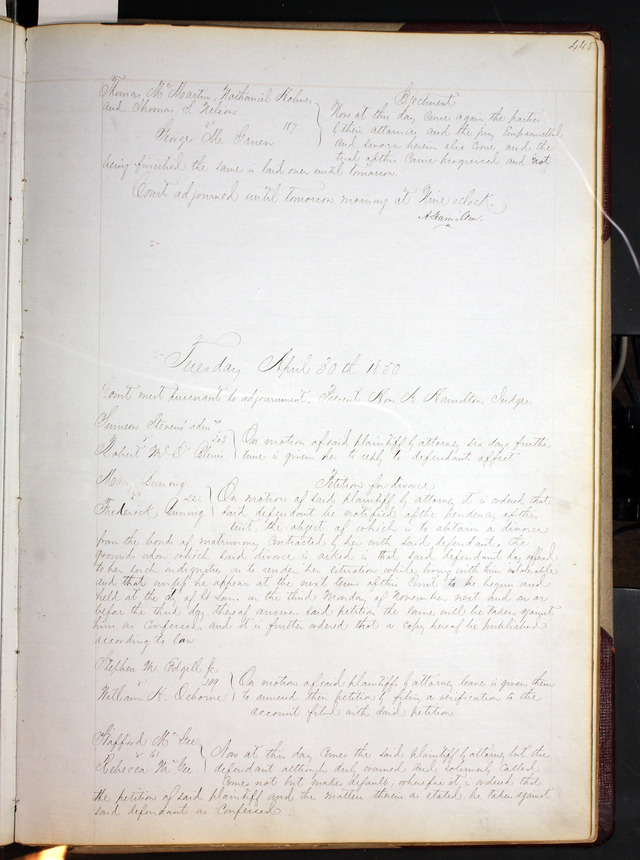 445
Thomas McMartin, Nathaniel Holmes
and Thomas S. Nelson
vs 187
George Mc Gruen
Ejectment
Now at this day come again the parties
by their attornies and the jury empannelled
and sworn herein also come and the
trial of this Cause progressed and not
being finished the same is laid over until tomorrow.
Court adjourned until tomorrow morning at Nine oclock.
A Hamilton.
Tuesday April 30th 1850
Court met pursuant to adjournment. Present Hon A Hamilton Judge
Stevens adm
vs 203
Robert Mc O
On motion of said plaintiff by attorney six days further
time is given to reply to defendant
vs 222
Frederick
Petition for divorce
On motion of said plaintiff by attorney it is ordered that
said defendant be notified of the pendency of this
suit the object of which is to obtain a divorce
from the bonds of matrimony contracted by her with said defendant, the
ground upon which said divorce is asked is that said defendant has offered
to her such indignities as to render her situation while living with him intolerable
and that unless he appear at the next term of this Court to be begun and
held at the of St Louis on the third Monday of November next and on or
before the third day thereof answer said petition the same will be taken against
him as Confessed. and it is further ordered that a copy hereof be published
according to law
Stephen M. Edgell &c
vs 199
William H. Osborne
On motion of said plaintiffs by attorney leave is given them
to amend their petition by filing a verification to the
account filed with said petition
Stafford McGee
vs
Rebecca McGee
Now at this day comes the said plaintiff by attorney but the
defendant although duly warned and solemnly called
comes not but makes default, wherefore it is ordered that
the petition of said plaintiff and the matters therein as stated be taken against
said defendant as Confessed.